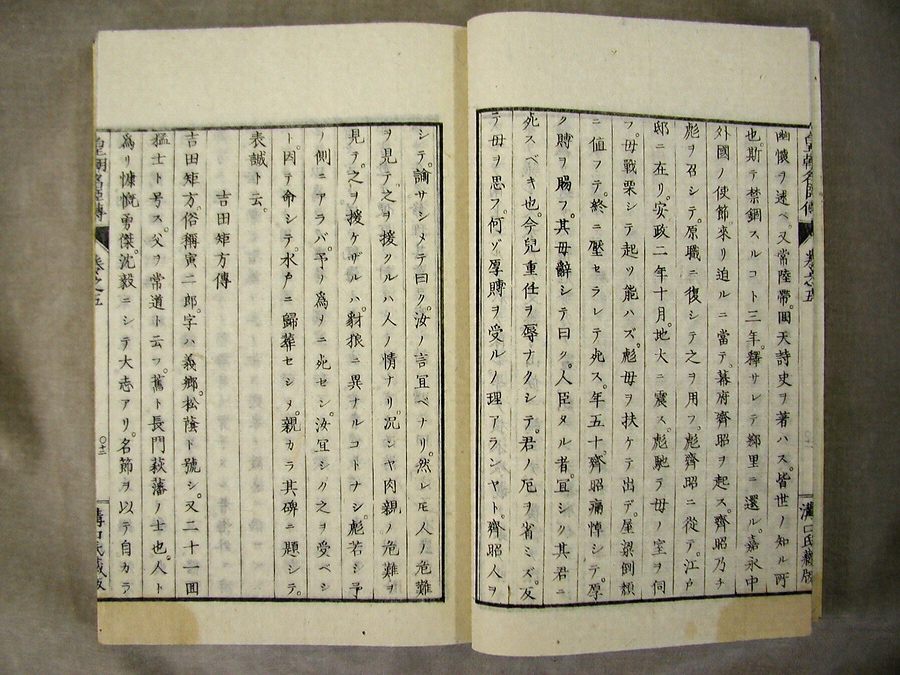 幽懐ヲ述ベ。又常陸帶。回天詩史ヲ著ハス。皆世ノ知ル所
也。斯テ禁錮スルコト三年。釋サレテ鄕里ニ還ル。嘉永中
外國ノ使節來リ迫ルニ當テ。幕府齊昭ヲ起ス。齊昭乃チ
彪ヲ召シテ。原職ニ復シテ之ヲ用フ。彪齊昭ニ從テ。江戸
邸ニ在リ。安政二年十月。地大ニ震ス。彪馳テ母ノ室ヲ伺
フ。母戰栗シテ起ツ能ハズ。彪母ヲ扶ケテ出デ。屋梁倒頽
ニ値フテ。終ニ壓セラレテ死ス。年五十。齊昭痛悼シテ。厚
ク賻ヲ賜フ。其母辭シテ曰ク。人臣タル者。宜シク其君ニ
死スベキ也。今兒重任ヲ辱ナクシテ。君ノ厄ヲ省ミズ。反
テ母ヲ思フ。何ゾ厚賻ヲ受ルノ理アランヤト。齊昭人ヲ
シテ。諭サシメテ曰ク。汝ノ言宜ベナリ。然レドモ人ノ危難
ヲ見テ。之ヲ援クルハ人ノ情ナリ。況ンヤ肉親ノ危難ヲ
見ヲ。之ヲ援ケザルハ。豺狼ニ異ナルコトナシ。彪若シ予
ノ側ニアラバ。予ノ爲メニ死セン。汝宜シク之ヲ受ベシ
ト。因テ命シテ。水戸ニ歸葬セシメ。親カラ其碑ニ題シテ。
表誠ト云。
吉田矩方傳
吉田矩方。俗稱寅二郎。字ハ義鄕。松蔭ト號シ。又二十一回
猛士ト号ス。父ヲ常道ト云フ。舊ト長門萩藩ノ士也。人ト
爲リ慷慨勇傑。沈毅ニシテ大志アリ。名節ヲ以テ自カラ
皇朝名臣傳
卷之五
十二
溝口氏藏版